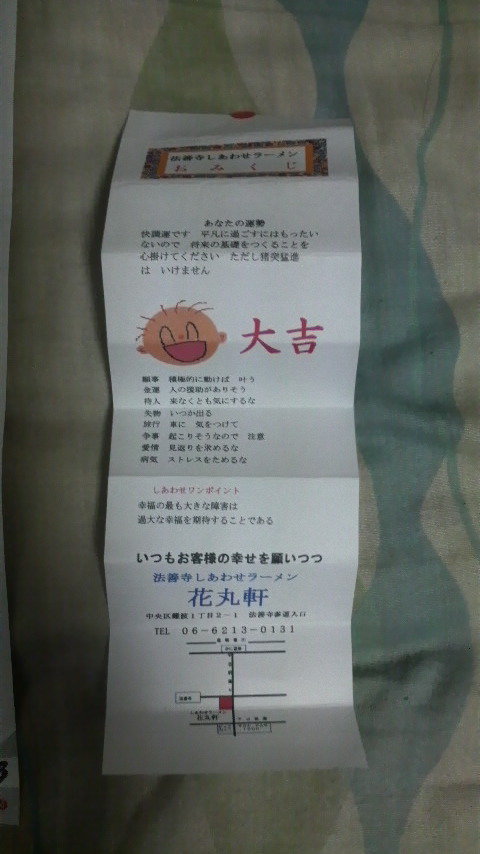 法善寺しあわせラーメン
おみくじ
あなたの運勢
快調運です 平凡に過ごすにはもったい
ないので 将来の基礎をつくることを
心掛けてください ただし猪突猛進
は いけません
大吉
願事 積極的に動けば 叶う
金運 人の援助がありそう
待人 来なくとも気にするな
失物 いつか出る
旅行 車に 気をつけて
争事 起こりそうなので 注意
愛情 見返りを求めるな
病気 ストレスをためるな
しあわせワンポイント
幸福の最も大きな障害は
過大な幸福を期待することである
いつもお客様の幸せを願いつつ
法善寺しあわせラーメン
花丸軒
中央区難波1丁目2-1 法善寺参道入口
TEL 06-6213-0131
しあわせラーメン
花丸軒